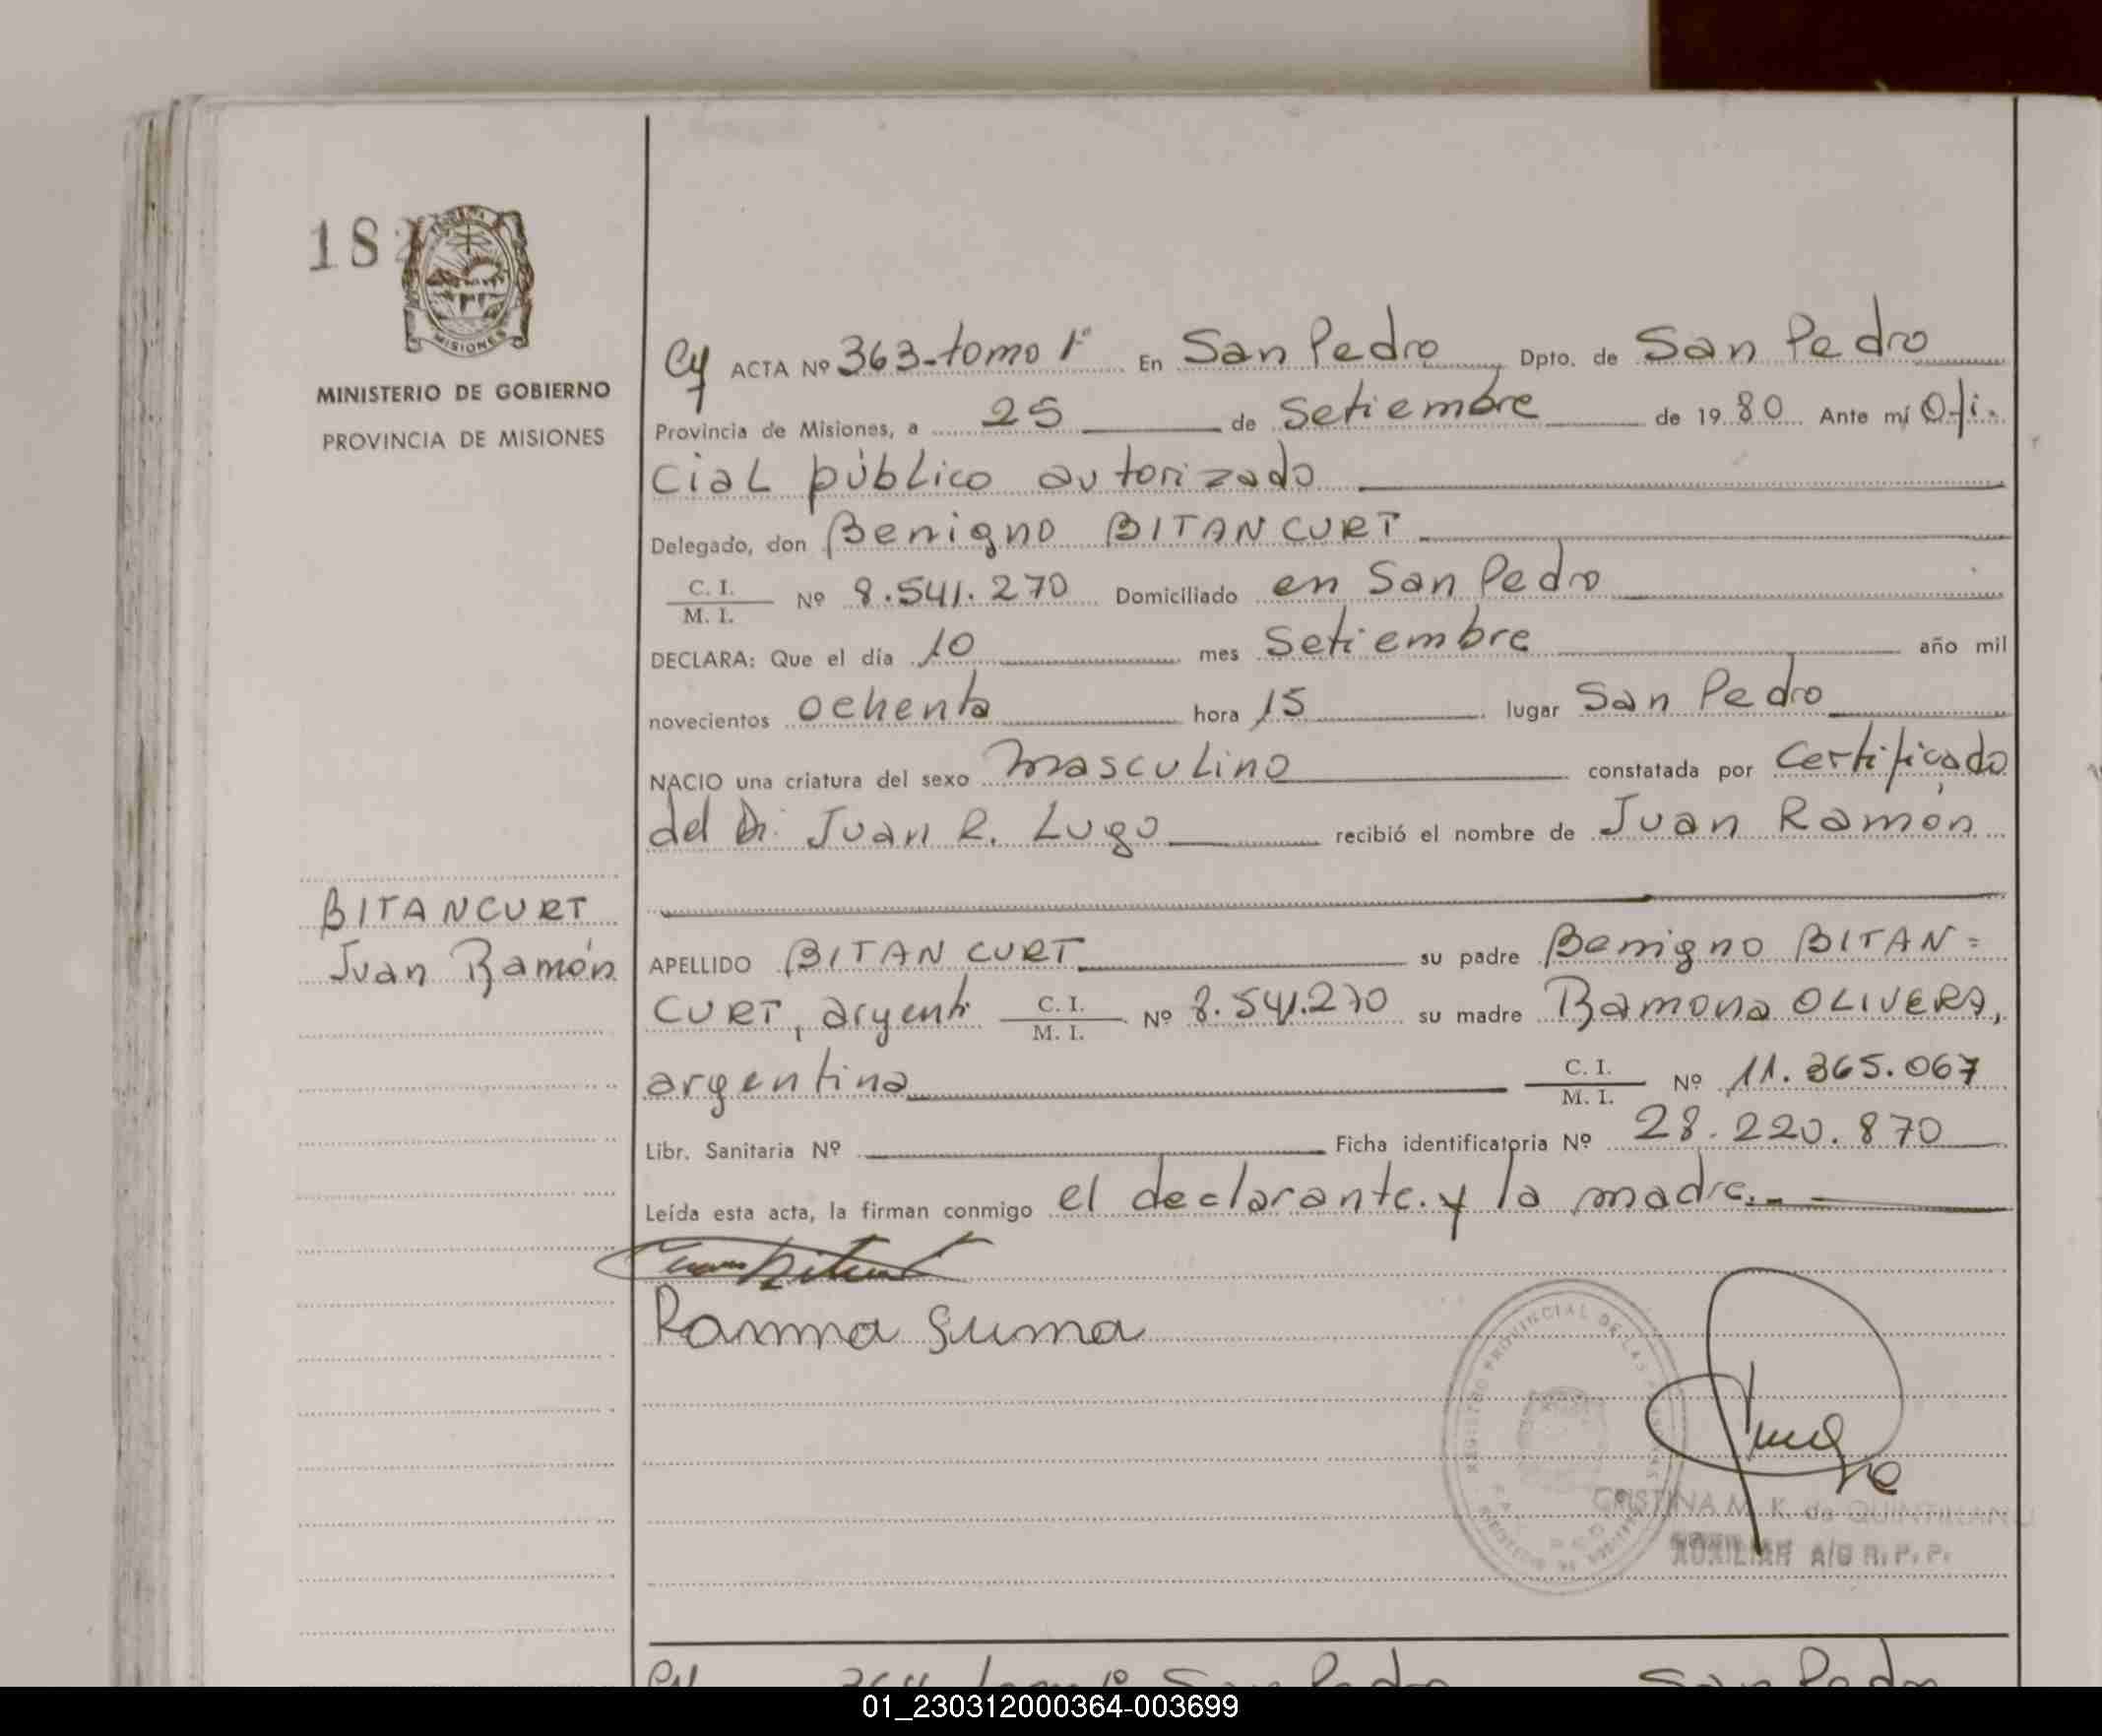 18
MISIONES
MINISTERIO DE GOBIERNO
PROVINCIA DE MISIONES
BITANCURT
Juan Ramón
Cy ACTA Nº 363-tomo 1º En San Pedro Dpto. de San Pedro
Provincia de Misiones, a 25 de Setiembre de 1980 Ante mí Ofi-
cial público autorizado
Delegado, don Benigno BITANCURT
C. I. / M. I. Nº 8.541.270 Domiciliado en San Pedro
DECLARA: Que el día 10 mes Setiembre año mil
novecientos ochenta hora 15 lugar San Pedro
NACIO una criatura del sexo masculino constatada por certificado
del Dr. Juan R. Lugo recibió el nombre de Juan Ramón
APELLIDO BITANCURT su padre Benigno BITAN=
CURT, argenti C. I. / M. I. Nº 8.541.270 su madre Ramona OLIVERA,
argentina C. I. / M. I. Nº 11.365.067
Libr. Sanitaria Nº Ficha identificatoria Nº 28.220.870
Leída esta acta, la firman conmigo el declarante. y la madre.-
REGISTRO PROVINCIAL DE LAS PERSONAS
CRISTINA M. K. de QUINTILIANO
AUXILIAR A/C R. P. P.
San Pedro San Pedro
01_230312000364-003699